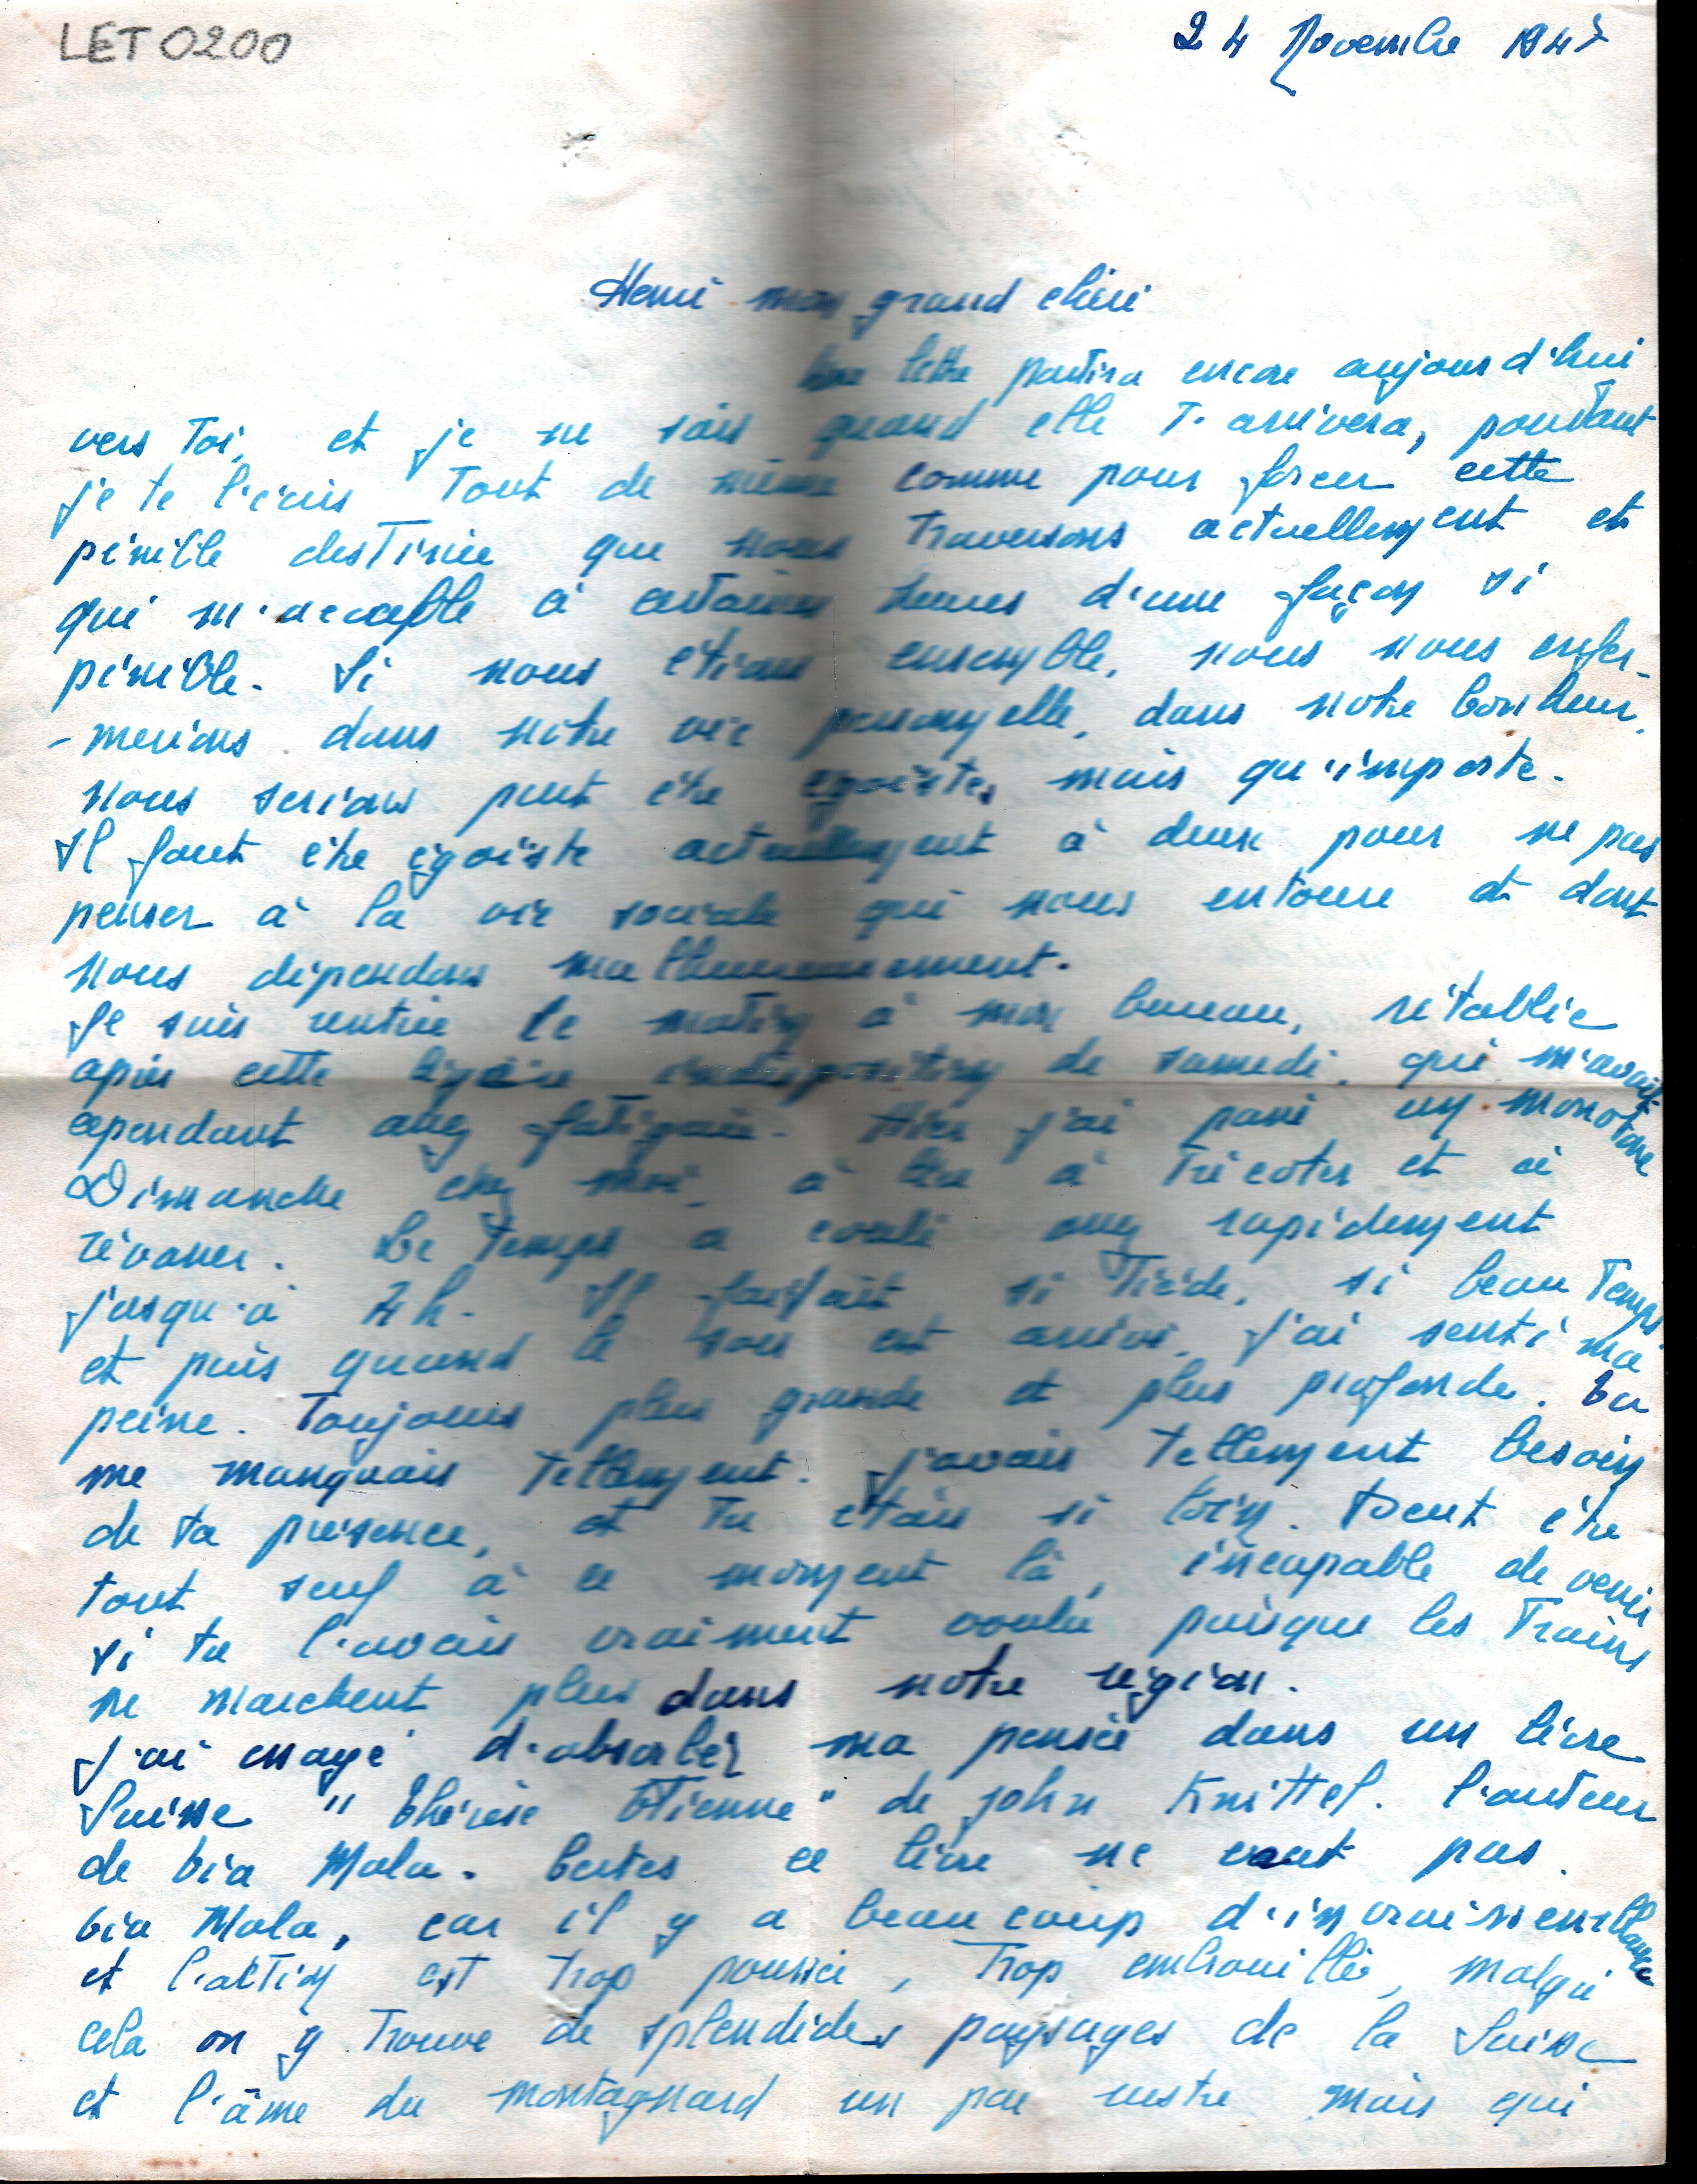 LET 0200
24 Novembre 1947
Henri mon grand chéri
Une lettre partira encore aujourd'hui
vers toi, et je ne sais quand elle t'arrivera, pourtant
je te l'écris tout de même comme pour forcer cette
pénible destinée que nous traversons actuellement et
qui m'accable à certaines heures d'une façon si
pénible. Si nous étions ensemble, nous nous enfer-
-merions dans notre vie personnelle, dans notre bonheur,
nous serions peut être égoïstes, mais qu'importe.
Il faut être égoïste actuellement à deux pour ne pas
penser à la vie sociale qui nous entoure et dont
nous dépendons malheureusement.
Je suis rentrée ce matin à mon bureau, rétablie
après cette légère indisposition de samedi, qui m'avait
cependant assez fatiguée. Hier j'ai passé un monotone
Dimanche chez moi, à lire à tricoter et à
rêvasser. Le temps a coulé assez rapidement
jusqu'à 4h. Il faisait si tiède, si beau temps
et puis quand le soir est arrivé, j'ai senti ma
peine. Toujours plus grande et plus profonde. Tu
me manquais tellement. J'avais tellement besoin
de ta présence, et tu étais si loin. Peut être
tout seul à ce moment là, incapable de venir
si tu l'avais vraiment voulu puisque les trains
ne marchent plus dans notre région.
J'ai essayé d'absorber ma pensée dans un livre
Suisse "Thérèse Etienne" de John Knittel. l'auteur
de Via Mala. Certes ce livre ne vaut pas
Via Mala, car il y a beaucoup d'invraisemblance
et l'action est trop poussée, trop embrouillée, malgré
cela on y trouve de splendides paysages de la Suisse
et l'âme du montagnard un peu rustre mais qui